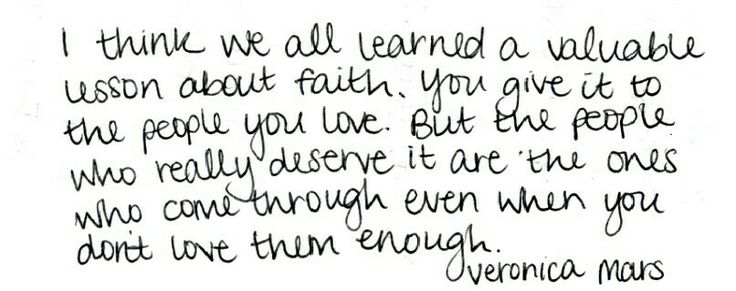 I think we all learned a valuable
lesson about faith. You give it to
the people you love. But the people
who really deserve it are the ones
who come through even when you
don't love them enough.
veronica mars